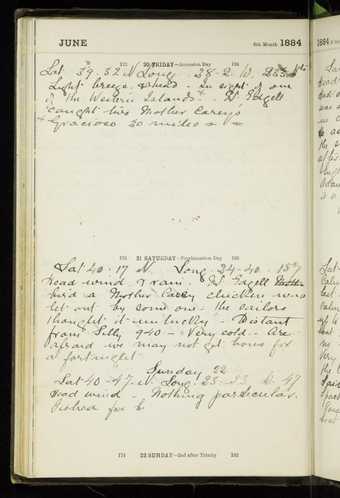 JUNE 6th Month 1884
172 20 FRIDAY—Accession Day 194
Lat 39.32 N Long. 28-2 W.
Light breeze ahead - in sight of one
of the Western Islands - W Edgell
caught two Mother Carey's
+ Gracioso 30 miles
173 21 SATURDAY—Proclamation Day 193
Lat 40-17 N. Long. 24-40.
Head wind & rain. W Edgell
bird a Mother Carey chicken was
let out by some one - the sailors
thought it unlucky - Distant
from Scilly 940 - Very cold - Are
afraid we may not get home for
a fortnight
Sunday 22
Lat 40-47 N Long. 23-53 W. 47
Head wind - Nothing particular.
for
174 22 SUNDAY—2nd after Trinity 192